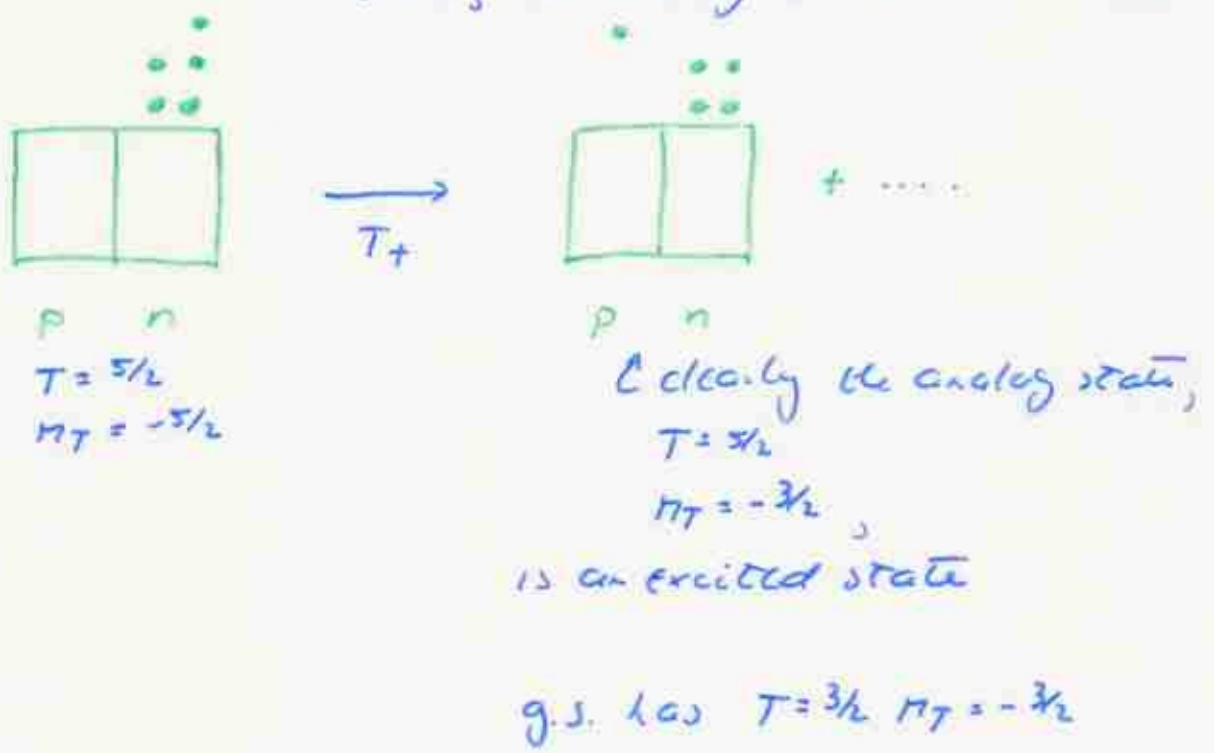 T+
+ .....
p n
p n
T = 5/2
MT = -5/2
clearly the analog state,
T = 5/2
MT = -3/2,
is an excited state
g.s. has T = 3/2 MT = -3/2